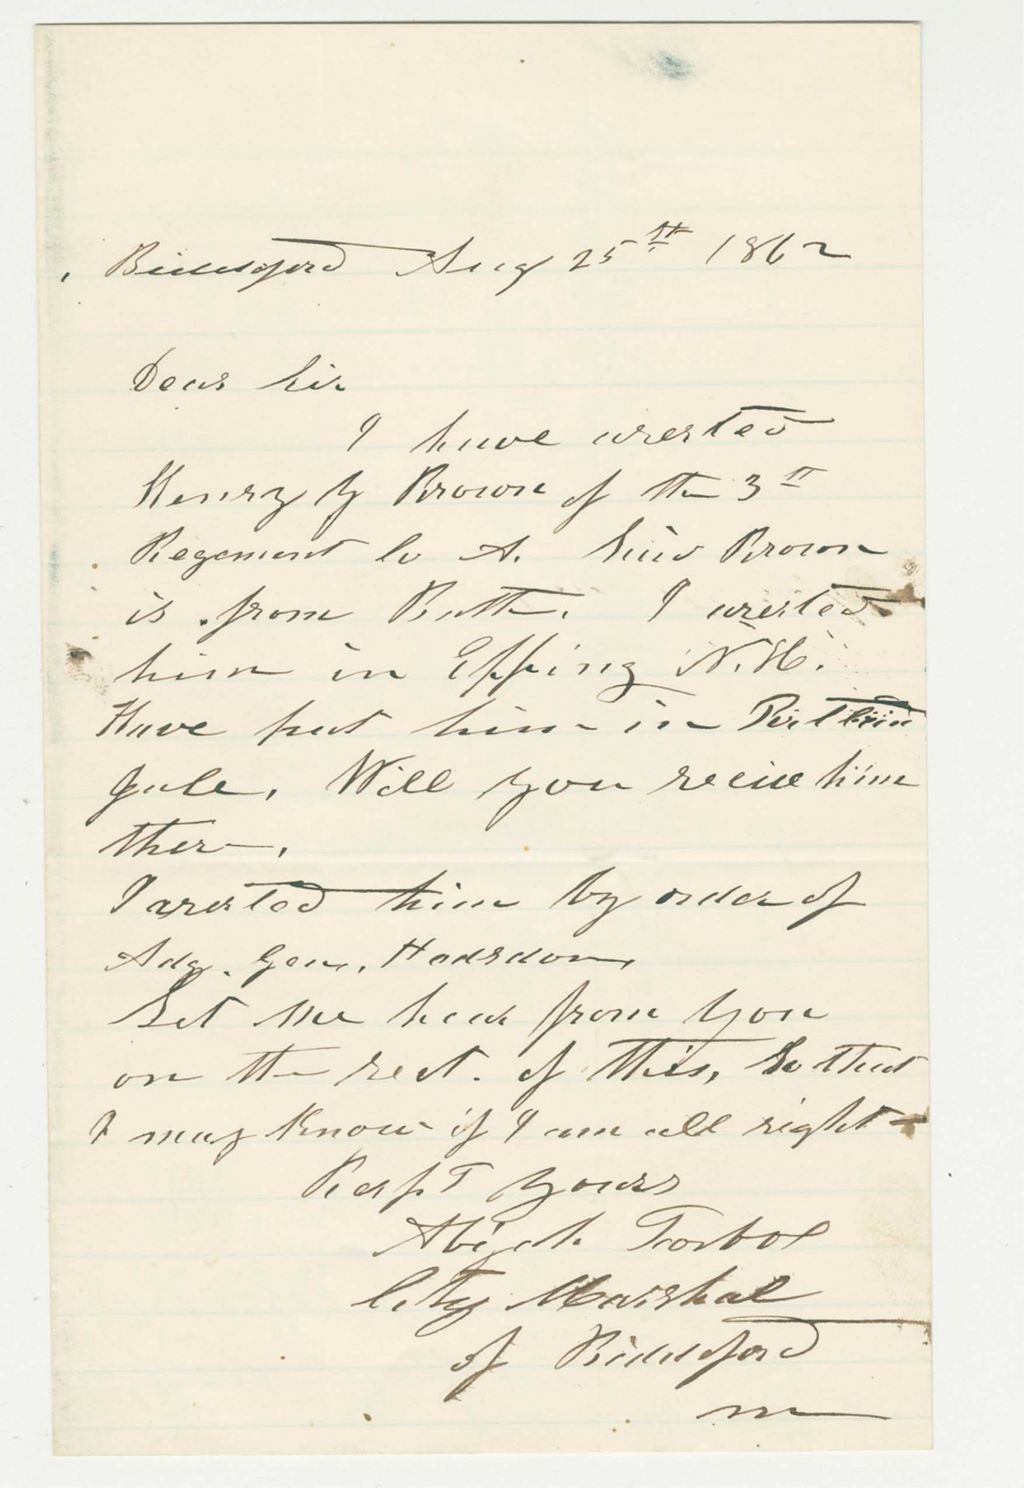 Biddeford Aug 25th 1862
Dear Sir
I have arested
Henry Y Brown of the 3rd
Regement Co A. Said Brown
is from Bath. I arested
him in Epping N.H.
Have put him in Portland
Jale, Will you recive him
ther.
I arested him by order of
Adg. Gen. Hodsdon,
Let me hear from you
on the rect. of this, So that
I may Know if I am all right
Respt yours
Abijah Tarbox
City Marshal
of Biddeford